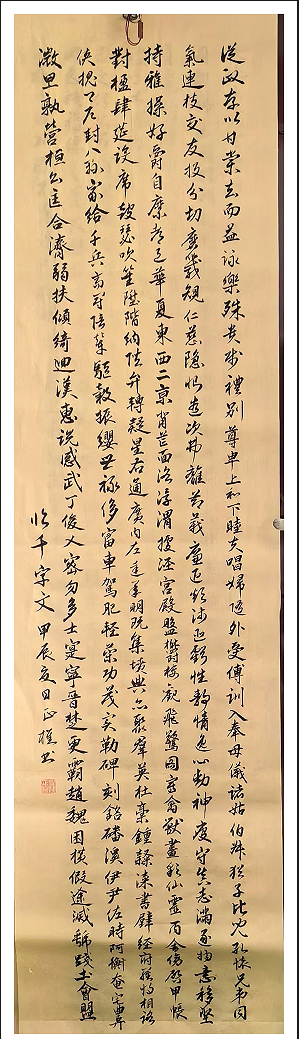 從政存以甘棠去而益詠樂殊貴賤禮別尊卑上和下睦夫唱婦隨外受傅訓入奉母儀諸姑伯叔猶子比兒孔懷兄弟同
氣連枝交友投分切磨箴規仁慈隱惻造次弗離節義廉退顛沛匪虧性靜情逸心動神疲守真志滿逐物意移堅
持雅操好爵自縻都邑華夏東西二京背芒面洛浮渭據涇宮殿盤鬱樓觀飛驚圖寫禽獸畫彩仙靈丙舍傍啓甲帳
對楹肆筵設席鼓瑟吹笙陞階納陛弁轉疑星右通廣內左達承明既集墳典亦聚羣英杜稾鍾隸漆書壁經府羅將相路
俠槐卿戶封八縣家給千兵高冠陪輦驅轂振纓世祿侈富車駕肥輕策功茂實勒碑刻銘磻溪伊尹佐時阿衡奄宅曲阜
微旦孰營桓公匡合濟弱扶傾綺迴漢惠說感武丁俊乂密勿多士寔寧晉楚更霸趙魏困橫假途滅虢踐土會盟
臨千字文 甲辰夏日正書